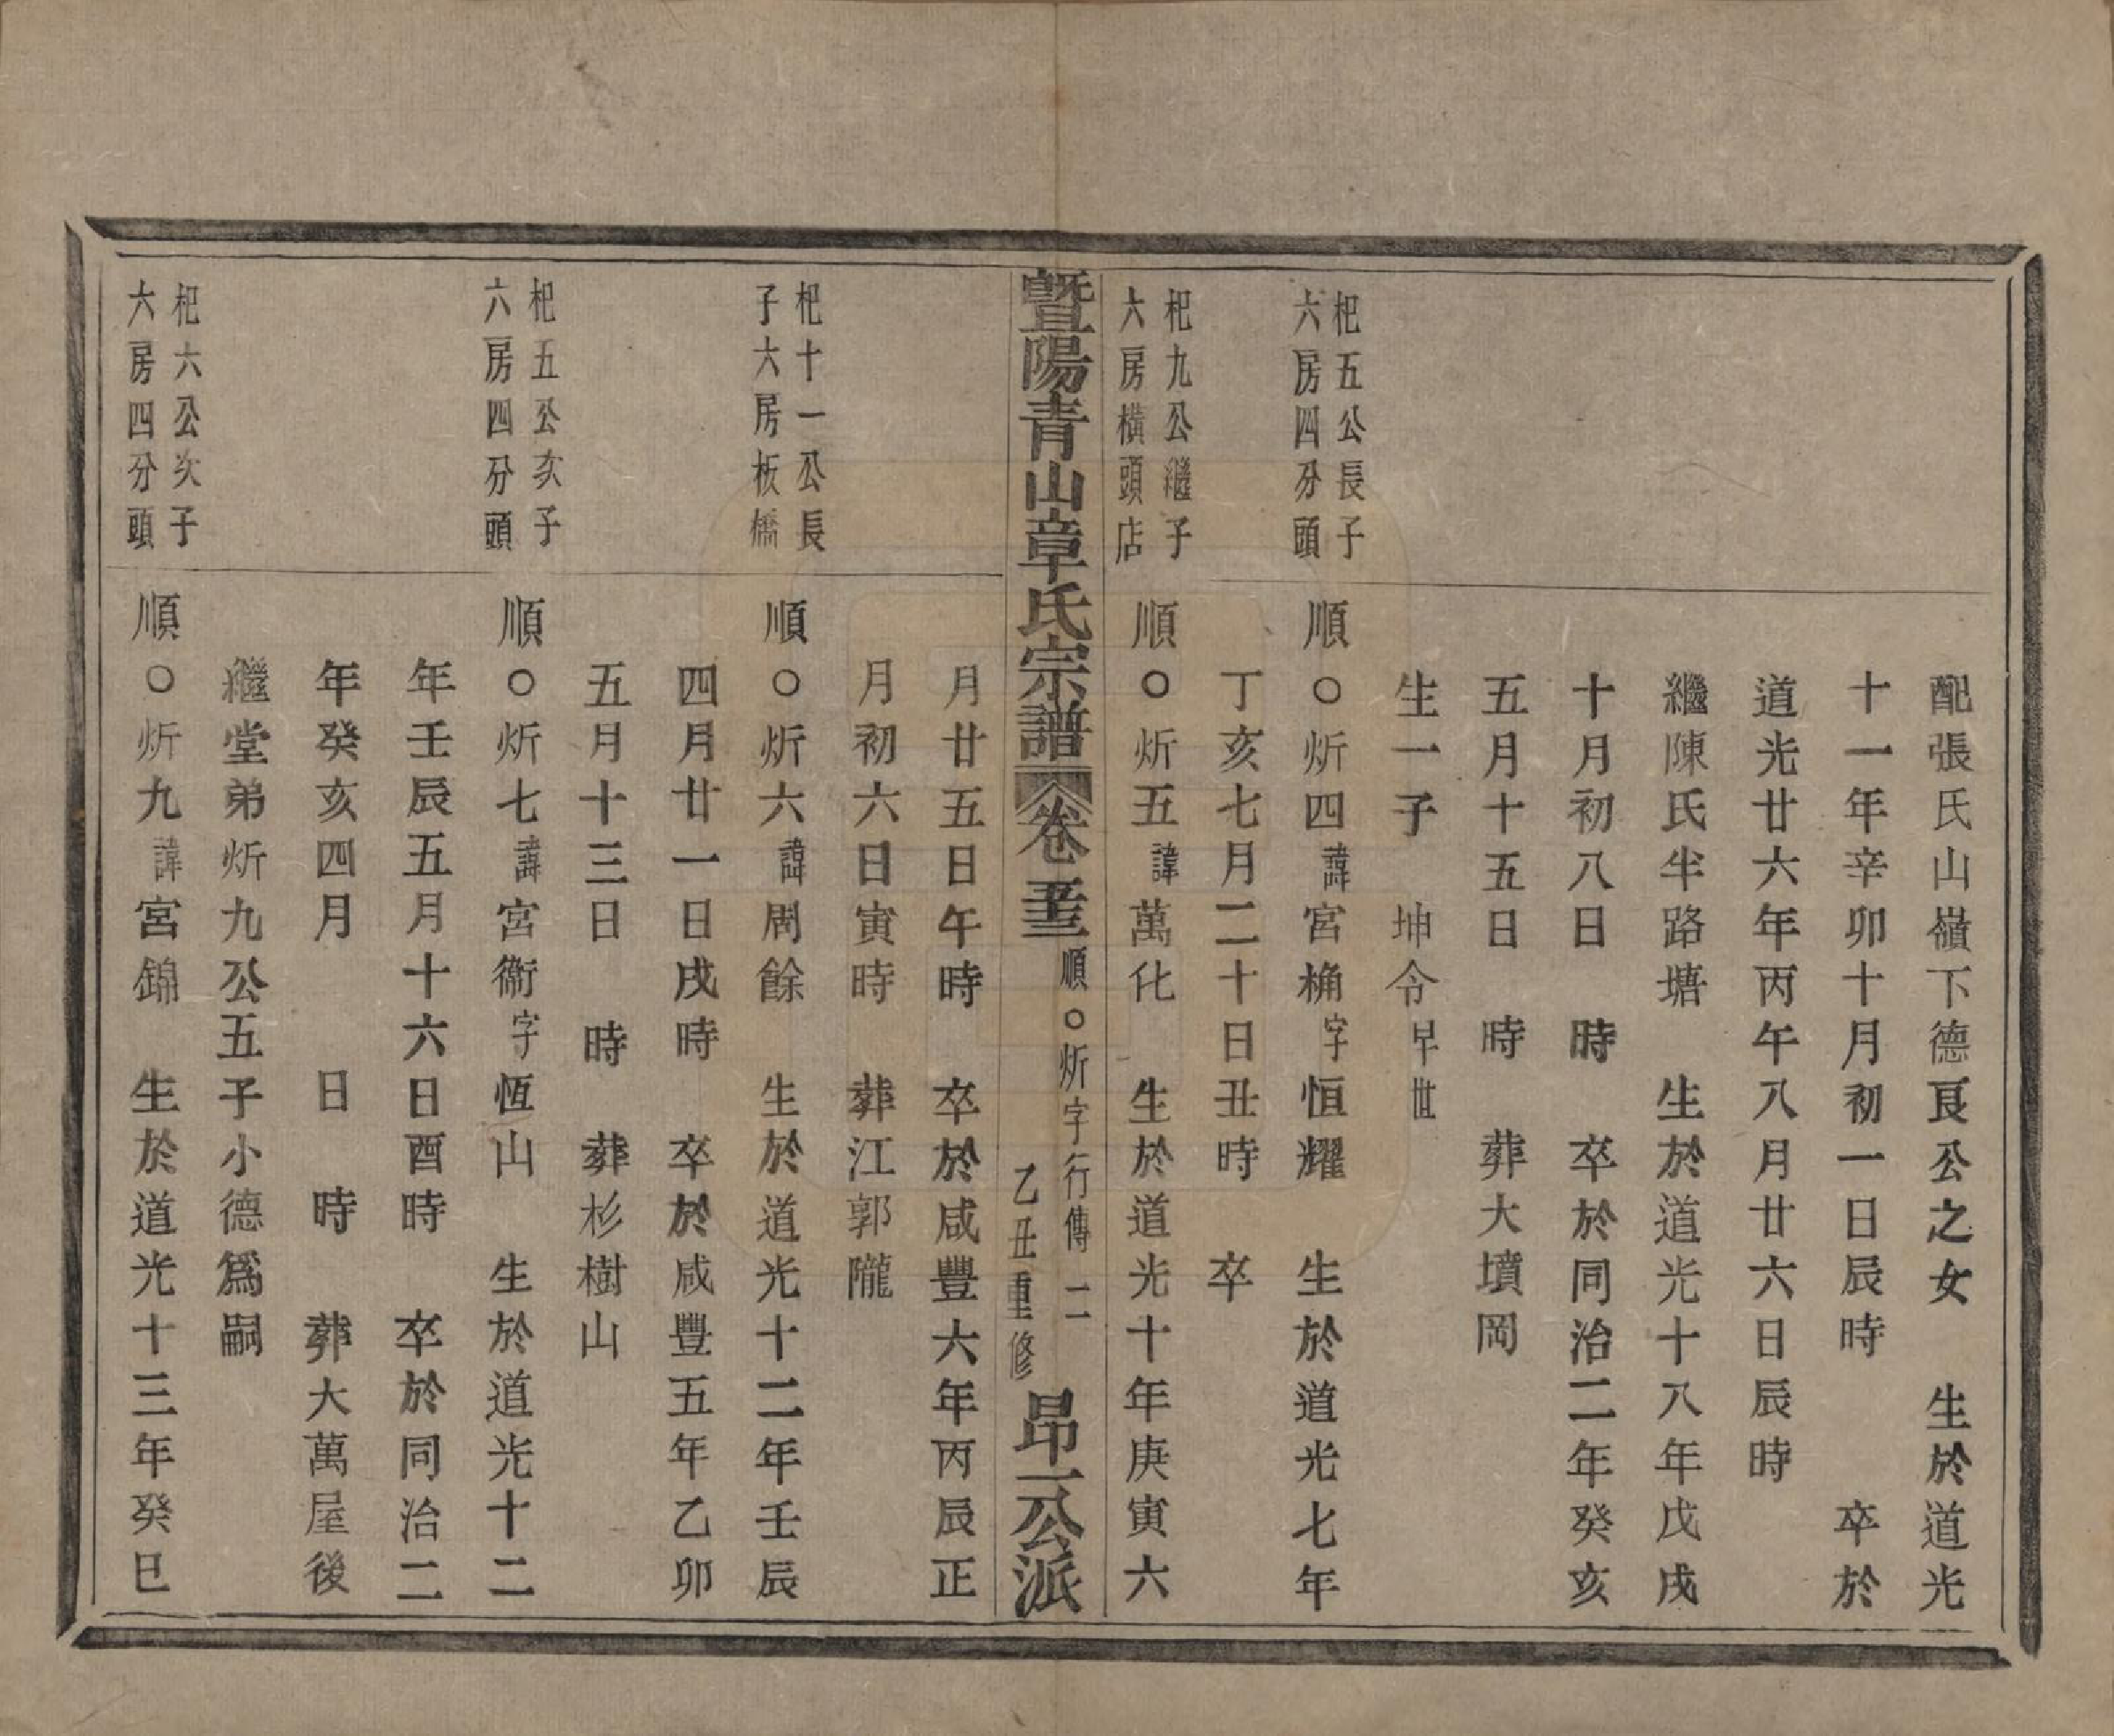 配張氏山嶺下德艮公之女　生於道光
十一年辛卯十月初一日辰時　　卒於
道光廿六年丙午八月廿六日辰時
繼陳氏半路塘　生於道光十八年戊戌
十月初八日　時　卒於同治二年癸亥
五月十五日　時　葬大墳岡
生一子　坤令早世
杞五公長子
六房四分頭
順○炘四諱宮桷字恒耀　生於道光七年
丁亥七月二十日丑時　卒
杞九公繼子
大房橫頭店
順○炘五諱萬化　生於道光十年庚寅六
暨陽青山章氏宗譜
順○炘字行傳　二
乙丑重修
昂一公派
月廿五日午時　卒於咸豐六年丙辰正
月初六日寅時　葬江郭隴
杞十一公長
子大房板橋
順○炘六諱周餘　生於道光十二年壬辰
四月廿一日戌時　卒於咸豐五年乙卯
五月十三日　時　葬杉樹山
杞五公次子
六房四分頭
順○炘七諱宮衢字恆山　生於道光十二
年壬辰五月十六日酉時　卒於同治二
年癸亥四月　　日　時　葬大萬屋後
繼堂弟炘九公五子小德爲嗣
杞六公次子
六房四分頭
順○炘九諱宮錦　生於道光十三年癸巳